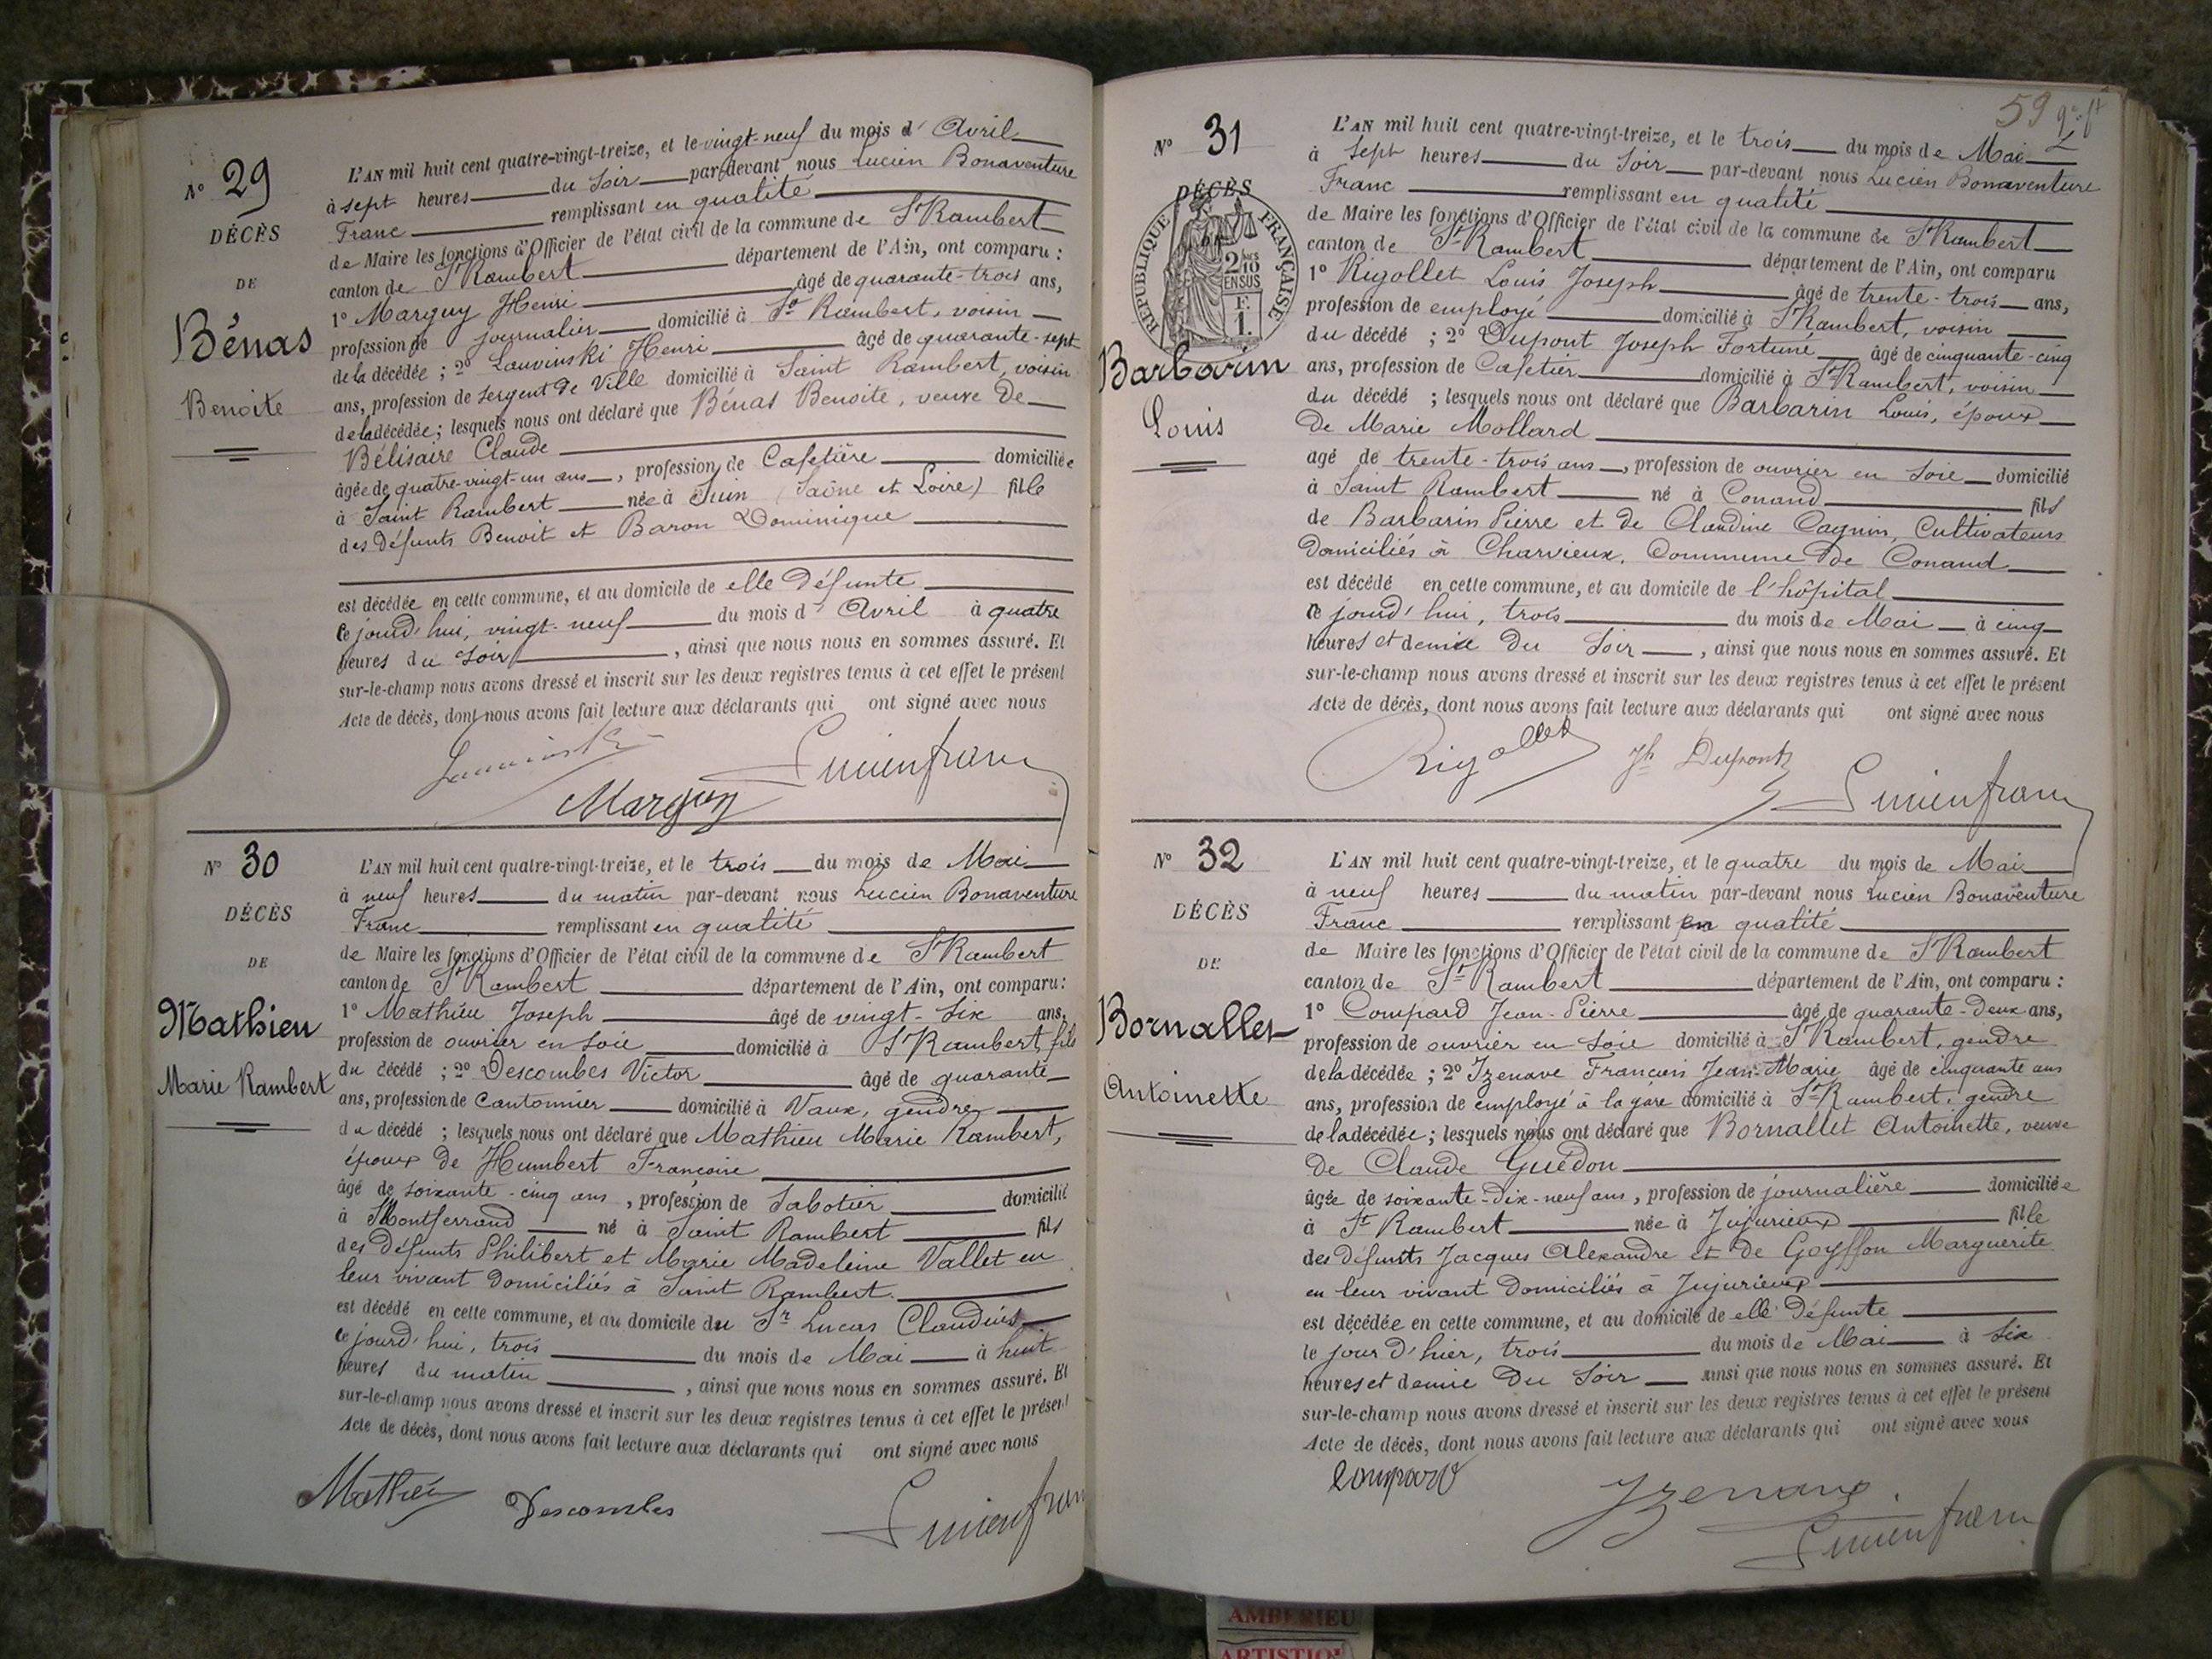 N° 29
DÉCÈS
DE
Bénas
Benoite
L'AN mil huit cent quatre-vingt-treize, et le vingt-neuf du mois d' Avril
à sept heures du soir par-devant nous Lucien Bonaventure
Franc remplissant en qualité
de Maire les fonctions d'Officier de l'état civil de la commune de St Rambert
canton de St Rambert département de l'Ain, ont comparu :
1° Marguy Henri âgé de quarante-trois ans,
profession de journalier domicilié à St Rambert, voisin
de la décédée ; 2° Louvinski Henri âgé de quarante-sept
ans, profession de sergent de Ville domicilié à Saint Rambert, voisin
de la décédée ; lesquels nous ont déclaré que Bénas Benoite, veuve de
Bélisaire Claude
âgée de quatre-vingt-un ans, profession de Cafetière domiciliée
à Saint Rambert née à Suin (Saône et Loire) fille
des défunts Benoit et Baron Dominique
est décédée en cette commune, et au domicile de elle défunte
ce jourd'hui, vingt-neuf du mois d' Avril à quatre
heures du soir, ainsi que nous nous en sommes assuré. Et
sur-le-champ nous avons dressé et inscrit sur les deux registres tenus à cet effet le présent
Acte de décès, dont nous avons fait lecture aux déclarants qui ont signé avec nous
Marguy Lucien franc
N° 30
DÉCÈS
DE
Mathieu
Marie Rambert
L'AN mil huit cent quatre-vingt-treize, et le trois du mois de Mai
à neuf heures du matin par-devant nous Lucien Bonaventure
Franc remplissant en qualité
de Maire les fonctions d'Officier de l'état civil de la commune de St Rambert
canton de St Rambert département de l'Ain, ont comparu :
1° Mathieu Joseph âgé de vingt-six ans,
profession de ouvrier en soie domicilié à St Rambert, fils
du décédé ; 2° Descombes Victor âgé de quarante
ans, profession de Cantonnier domicilié à Vaux, gendre
du décédé ; lesquels nous ont déclaré que Mathieu Marie Rambert,
époux de Humbert Françoise
âgé de soixante-cinq ans, profession de Sabotier domicilié
à Montferrand né à Saint Rambert fils
des défunts Philibert et Marie Madeleine Vallet en
leur vivant domiciliés à Saint Rambert.
est décédé en cette commune, et au domicile du Sr Lucas Claudius
ce jourd'hui, trois du mois de Mai à huit
heures du matin, ainsi que nous nous en sommes assuré. Et
sur-le-champ nous avons dressé et inscrit sur les deux registres tenus à cet effet le présent
Acte de décès, dont nous avons fait lecture aux déclarants qui ont signé avec nous
Mathieu Descombes Lucien franc
59
N° 31
DÉCÈS
RÉPUBLIQUE FRANÇAISE
2/10 EN SUS
F. 1.
Barbarin
Louis
L'AN mil huit cent quatre-vingt-treize, et le trois du mois de Mai
à sept heures du soir par-devant nous Lucien Bonaventure
Franc remplissant en qualité
de Maire les fonctions d'Officier de l'état civil de la commune de St Rambert
canton de St Rambert département de l'Ain, ont comparu
1° Rigollet Louis Joseph âgé de trente-trois ans,
profession de employé domicilié à St Rambert, voisin
du décédé ; 2° Dupont Joseph Fortuné âgé de cinquante-cinq
ans, profession de Cafetier domicilié à St Rambert, voisin
du décédé ; lesquels nous ont déclaré que Barbarin Louis, époux
de Marie Mollard
agé de trente-trois ans, profession de ouvrier en soie domicilié
à Saint Rambert né à Conand fils
de Barbarin Pierre et de Claudine Cagnin, Cultivateurs
domiciliés à Charvieux, Commune de Conand
est décédé en cette commune, et au domicile de l'hôpital
ce jourd'hui, trois du mois de Mai à cinq
heures et demie du soir, ainsi que nous nous en sommes assuré. Et
sur-le-champ nous avons dressé et inscrit sur les deux registres tenus à cet effet le présent
Acte de décès, dont nous avons fait lecture aux déclarants qui ont signé avec nous
Rigollet Jh Dupont Lucien franc
N° 32
DÉCÈS
DE
Bornallet
Antoinette
L'AN mil huit cent quatre-vingt-treize, et le quatre du mois de Mai
à neuf heures du matin par-devant nous Lucien Bonaventure
Franc remplissant en qualité
de Maire les fonctions d'Officier de l'état civil de la commune de St Rambert
canton de St Rambert département de l'Ain, ont comparu :
1° Compard Jean-Pierre âgé de quarante-deux ans,
profession de ouvrier en soie domicilié à St Rambert, gendre
de la décédée ; 2° Izenave Francien Jean-Marie âgé de cinquante ans
ans, profession de employé à la gare domicilié à St Rambert, gendre
de la décédée ; lesquels nous ont déclaré que Bornallet Antoinette, veuve
de Claude Guédon
âgée de soixante-dix-neuf ans, profession de journalière domiciliée
à St Rambert née à Jujurieux fille
des défunts Jacques Alexandre et de Goyffon Marguerite
en leur vivant domiciliés à Jujurieux
est décédée en cette commune, et au domicile de elle défunte
le jour d'hier, trois du mois de Mai à six
heures et demie du soir ainsi que nous nous en sommes assuré. Et
sur-le-champ nous avons dressé et inscrit sur les deux registres tenus à cet effet le présent
Acte de décès, dont nous avons fait lecture aux déclarants qui ont signé avec nous
Compard Izenave Lucien franc
AMBERIEU
ARTISTIQ